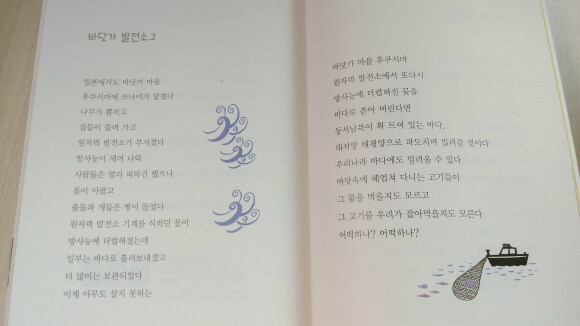 바닷가 발전소.2
일본에서도 바닷가 마을
후쿠시마에 쓰나미가 덮쳤다
나무가 뽑히고
집들이 쓸려 가고
원자력 발전소가 부서졌다
방사능이 새어 나와
사람들은 멀리 피하긴 했으나
몸이 아팠고
풀들과 개들은 병이 들었다
원자력 발전소 기계를 식히던 물이
방사능에 더럽혀졌는데
일부는 바다로 흘려보내졌고
더 많이는 보관되었다
이제 아무도 살지 못하는
바닷가 마을 후쿠시마
원자력 발전소에서 또다시
방사능에 더럽혀진 물을
바다로 쏟아 버린다면
동서남북이 확 트여 있는 바다,
대서양 태평양으로 파도치며 밀려갈 것이다
우리나라 바다에도 밀려올 수 있다
바닷속에 헤엄쳐 다니는 고기들이
그 물을 먹을지도 모르고
그 고기를 우리가 잡아먹을지도 모른다
어떡하나? 어떡하나?